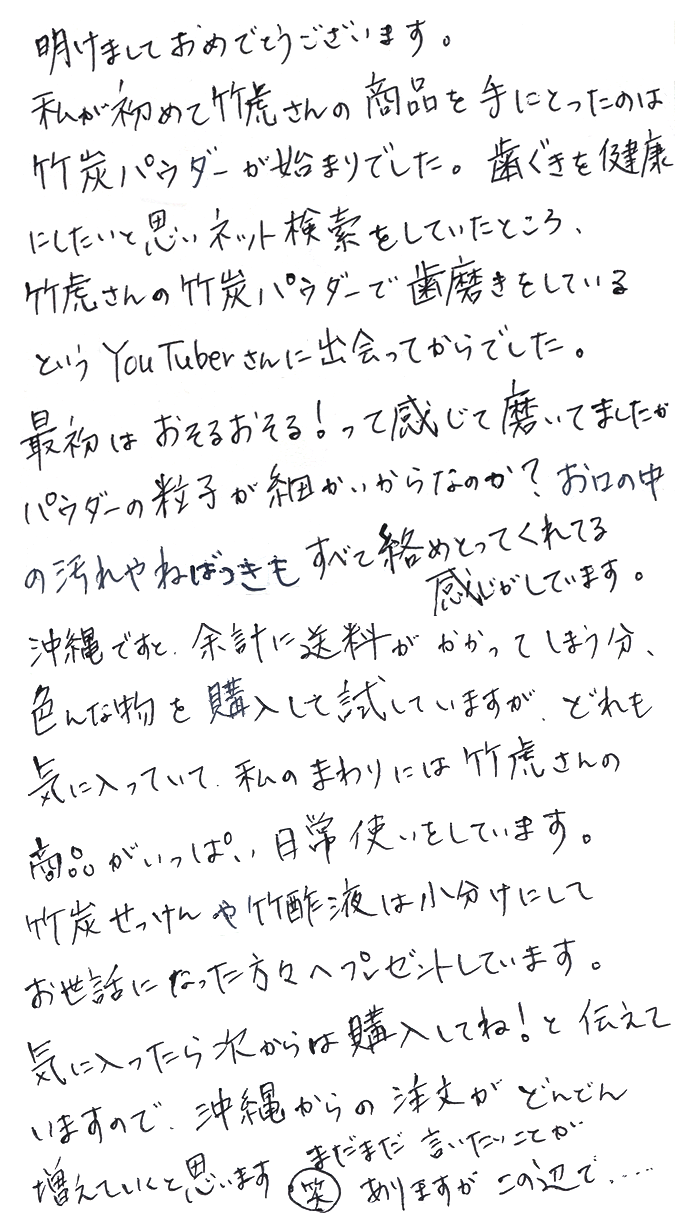 明けましておめでとうございます。
私が初めて竹虎さんの商品を手にとったのは
竹炭パウダーが始まりでした。歯ぐきを健康
にしたいと思いネット検索をしていたところ、
竹虎さんの竹炭パウダーで歯磨きをしている
という YouTuberさんに出会ってからでした。
最初はおそるおそる!って感じで磨いてましたが
パウダーの粒子が細かいからなのか?お口の中
の汚れやねばつきもすべて絡めとってくれてる
感じがしています。
沖縄ですと、余計に送料がかかってしまう分、
色んな物を購入して試していますが、どれも
気に入っていて、私のまわりには竹虎さんの
商品がいっぱい日常使いをしています。
竹炭せっけんや竹酢液は小分けにして
お世話になった方々へプレゼントしています。
気に入ったら次からは購入してね!と伝えて
いますので、沖縄からの注文がどんどん
増えていくと思います(笑)まだまだ言いたいことが
ありますがこの辺で.....